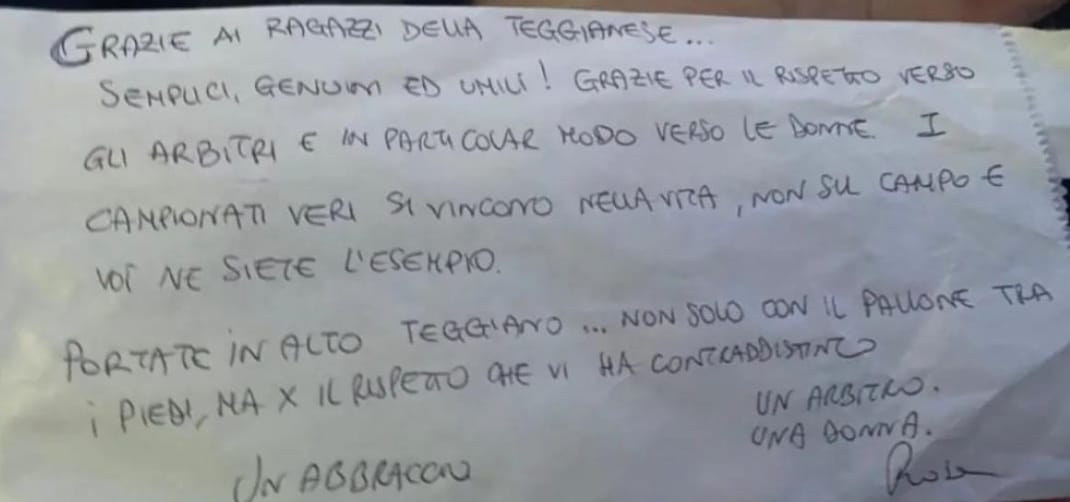 GRAZIE AI RAGAZZI DELLA TEGGIANESE...
SEMPLICI, GENUINI ED UMILI! GRAZIE PER IL RISPETTO VERSO
GLI ARBITRI E IN PARTICOLAR MODO VERSO LE DONNE. I
CAMPIONATI VERI SI VINCONO NELLA VITA, NON SUL CAMPO E
VOI NE SIETE L'ESEMPIO.
PORTATE IN ALTO TEGGIANO... NON SOLO CON IL PALLONE TRA
I PIEDI, MA X IL RISPETTO CHE VI HA CONTRADDISTINTO
UN ARBITRO.
UNA DONNA.
UN ABBRACCIO